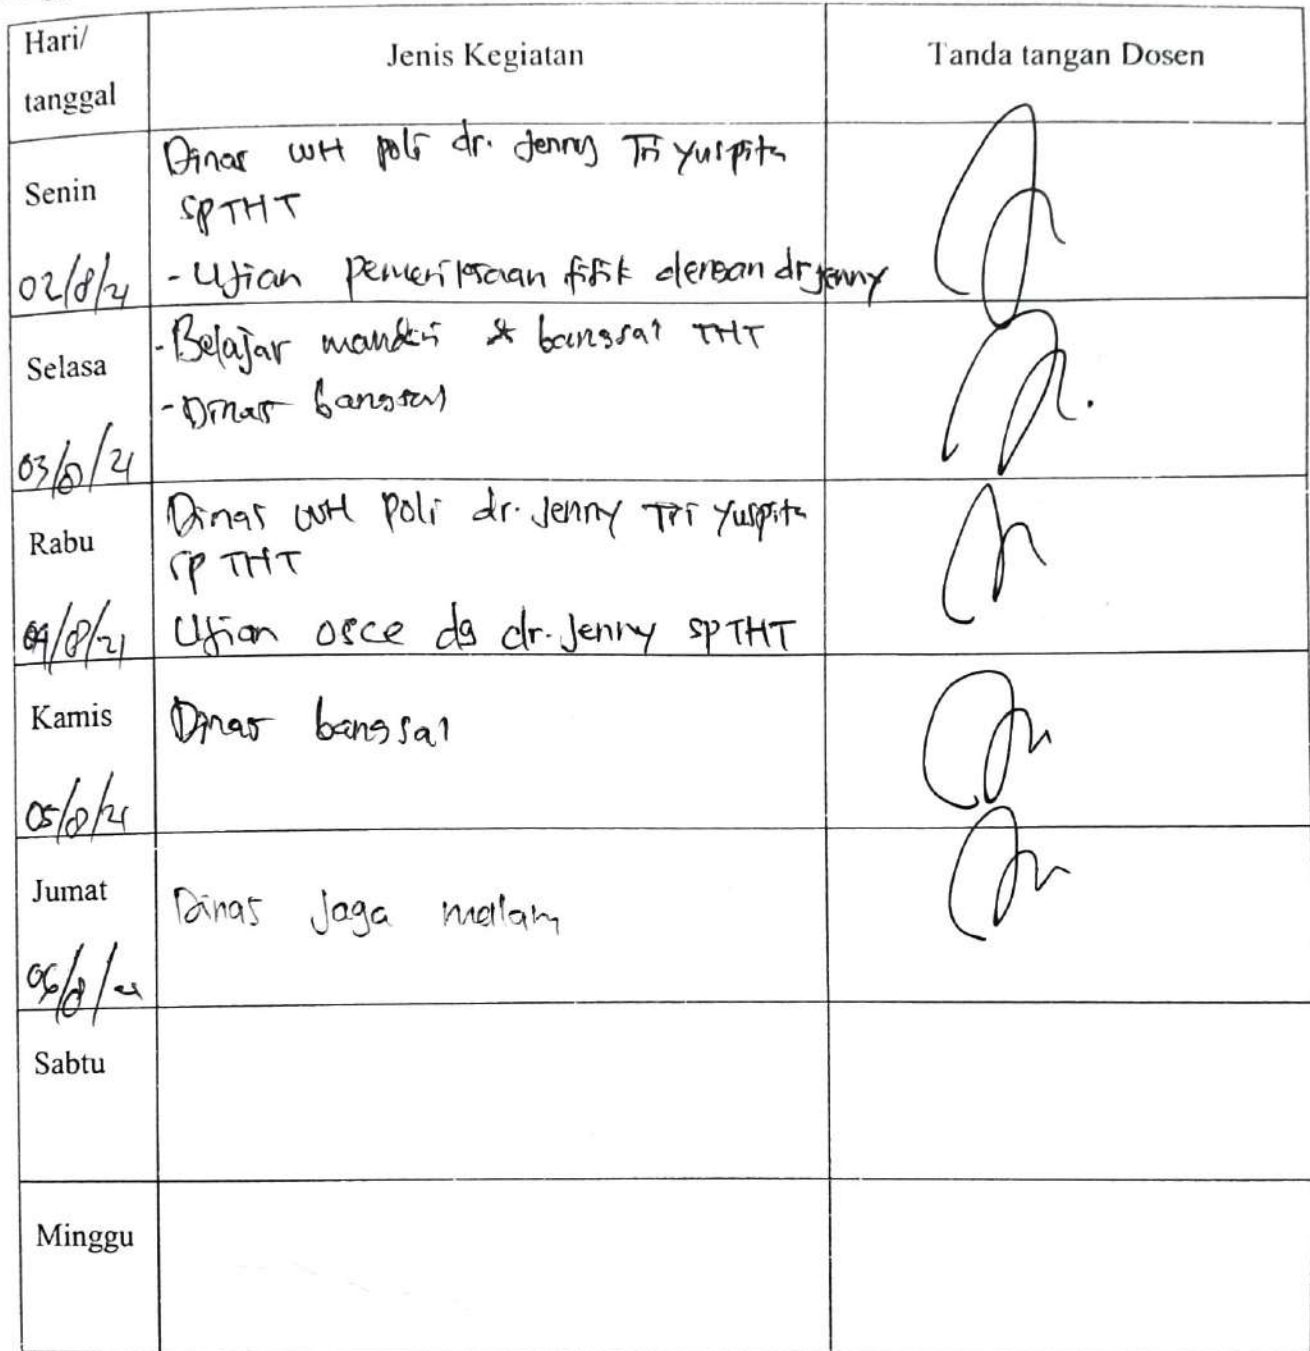 Hari/
tanggal
Jenis Kegiatan
Tanda tangan Dosen
Senin
02/8/21
Dinas WH poli dr. Jenny Tri Yuspita
SP THT
- Ujian pemeriksaan fisik dengan dr jenny
Selasa
03/8/21
- Belajar mandiri bangsal THT
- Dinas bangsal
Rabu
04/8/21
Dinas WH Poli dr. Jenny Tri Yuspita
SP THT
Ujian osce dg dr. Jenny SP THT
Kamis
05/8/21
Dinas bangsal
Jumat
06/8/21
Dinas Jaga malam
Sabtu
Minggu